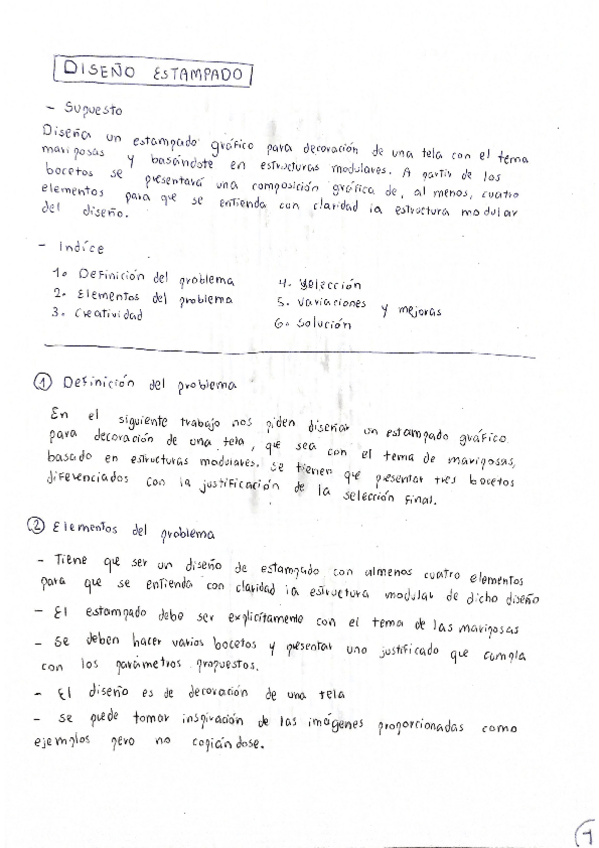 DISEÑO ESTAMPADO
- Supuesto
Diseña un estampado gráfico para decoración de una tela con el tema
mariposas y basándote en estructuras modulares. A partir de los
bocetos se presentará una composición gráfica de, al menos, cuatro
elementos para que se entienda con claridad la estructura modular
del diseño.
- Indíce
1. Definición del problema
2. Elementos del problema
3. Creatividad
4. Selección
5. Variaciones y mejoras
6. Solución
1 Definición del problema
En el siguiente trabajo nos piden diseñar un estampado gráfico
para decoración de una tela, que sea con el tema de mariposas,
basado en estructuras modulares. Se tienen que presentar tres bocetos
diferenciados con la justificación de la selección final.
2 Elementos del problema
- Tiene que ser un diseño de estampado con almenos cuatro elementos
para que se entienda con claridad la estructura modular de dicho diseño
- El estampado debe ser explícitamente con el tema de las mariposas
- Se deben hacer varios bocetos y presentar uno justificado que cumpla
con los parámetros propuestos.
- El diseño es de decoración de una tela
- Se puede tomar inspiración de las imágenes proporcionadas como
ejemplos pero no copiándose.
1